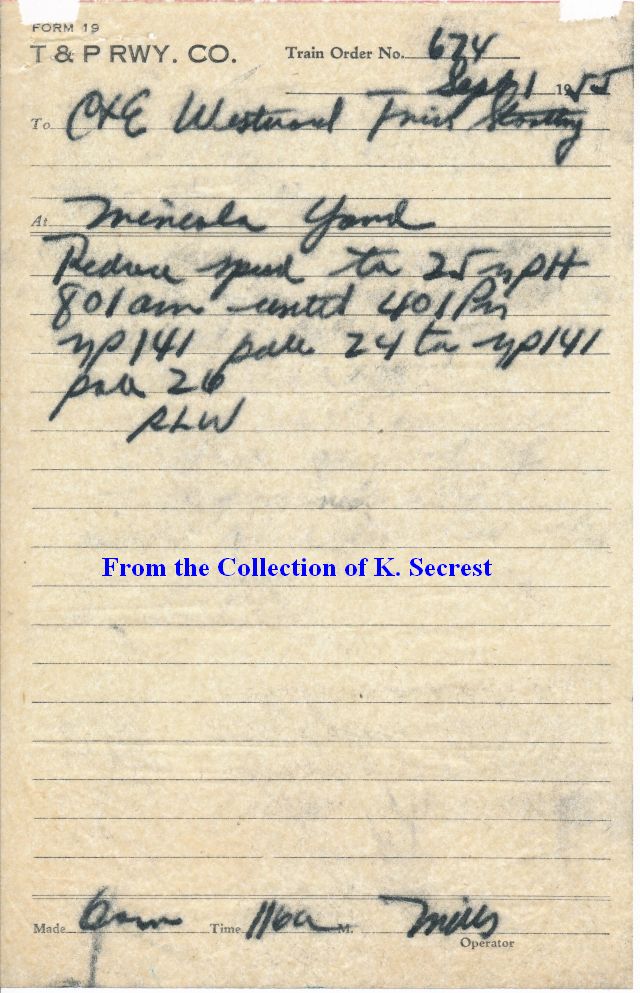 FORM 19
T & P RWY. CO.
Train Order No. 674
Sept 1 1955
To C&E Westward Trns Starting
At Mineola Yard
Reduce speed to 25 MPH
801 am until 401 Pm
MP141 pole 24 to MP141
pole 26
RLW
From the Collection of K. Secrest
Made Com Time 116a M. Mills
Operator